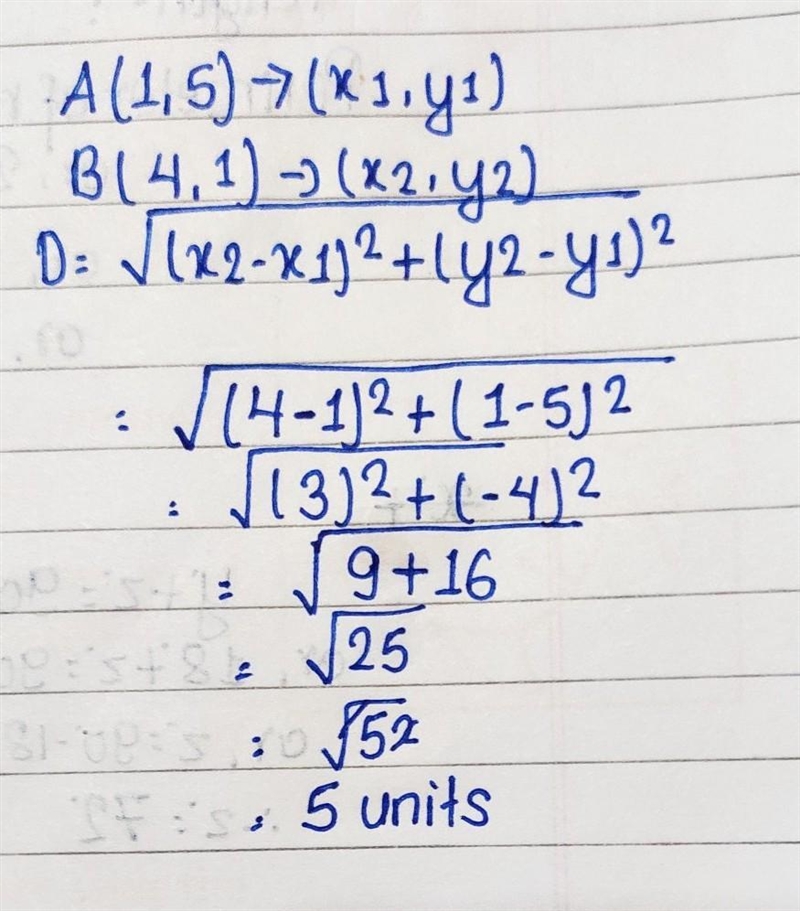 A(1,5)→(x1,y1)
B(4,1)→(x2,y2)
D= √(x2-x1)²+(y2-y1)²
= √(4-1)²+(1-5)²
= √(3)²+(-4)²
= √9+16
= √25
= √5²
= 5 units